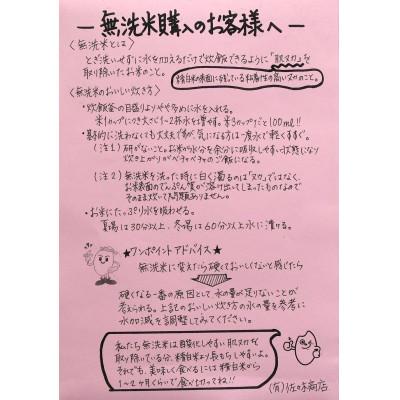 ― 無洗米購入のお客様へ ―
〈無洗米とは〉
とぎ洗いせずに水を加えるだけで炊飯できるように「肌ヌカ」を
取り除いたお米のこと。
精白米の表面に残っている粘着性の高いヌカのこと。
〈無洗米のおいしい炊き方〉
・炊飯釜の目盛りよりやや多めに水を入れる。
米1カップにつき大さじ1〜2杯水を増やす。米3カップだと100ml!!
・基本的に洗わなくても大丈夫ですが、気になる方は一度水で軽くすすぐ。
(注1) 研がないこと。お米が水分を余分に吸収しやすい状態になり
炊き上がりがベチャベチャのご飯になる。
(注2) 無洗米を洗った時に白く濁るのは「ヌカ」ではなく、
お米表面のでんぷん質が溶け出てしまったものなので
そのまま炊いて問題ありません。
・お米にたっぷり水を吸わせる。
夏場は30分以上、冬場は60分以上水に漬ける。
★ワンポイントアドバイス★
無洗米に変えたら硬くておいしくないと感じたら
硬くなる一番の原因として水の量が足りないことが
考えられる。上記のおいしい炊き方の水の量を参考に
水加減を調整してみてください。
私たち無洗米は酸化しやすい肌ヌカを
取り除いている分、精白米より長もちしやすいよ。
それでも、美味しく食べるには精白米から
1〜2ヶ月くらいで食べ切ってね!!
(有)佐々木商店